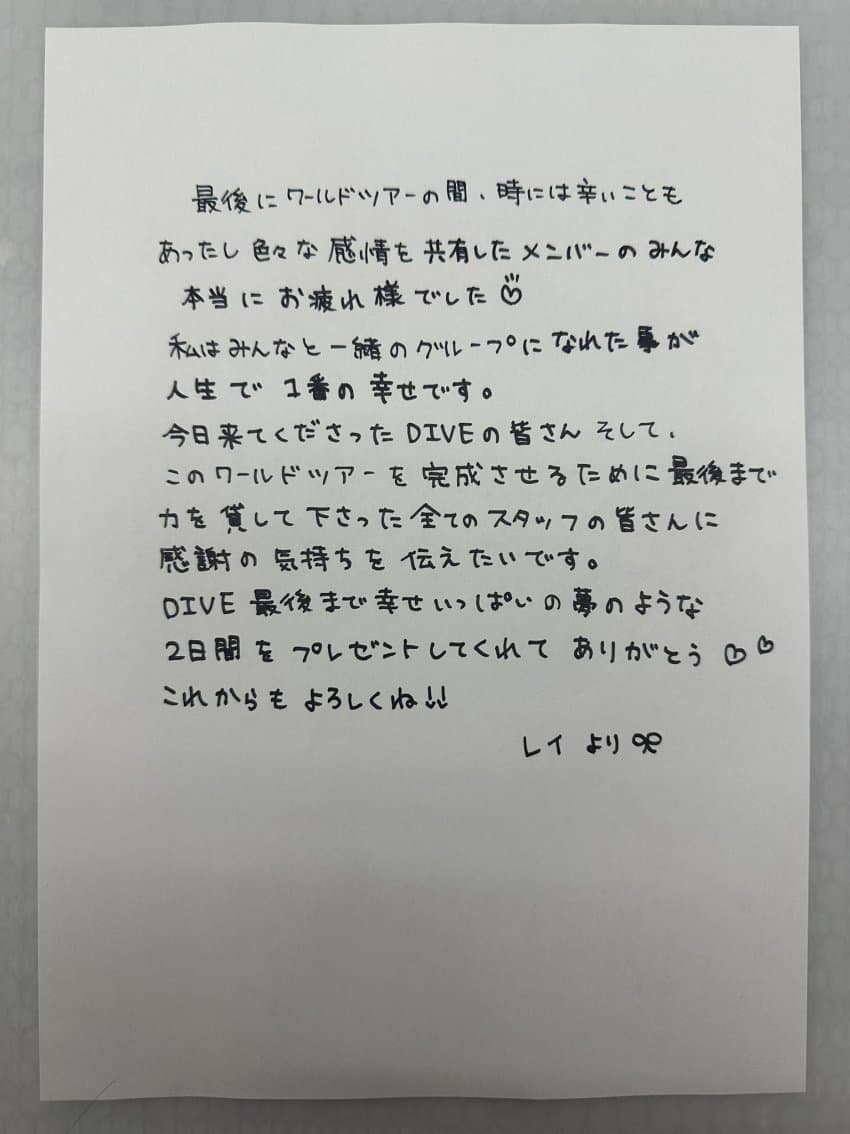 最後にワールドツアーの間、時には辛いことも
あったし色々な感情を共有したメンバーのみんな
本当にお疲れ様でした♡
私はみんなと一緒のグループになれた事が
人生で1番の幸せです。
今日来てくださったDIVEの皆さんそして、
このワールドツアーを完成させるために最後まで
力を貸して下さった全てのスタッフの皆さんに
感謝の気持ちを伝えたいです。
DIVE最後まで幸せいっぱいの夢のような
2日間をプレゼントしてくれてありがとう♡♡
これからもよろしくね!!
レイより